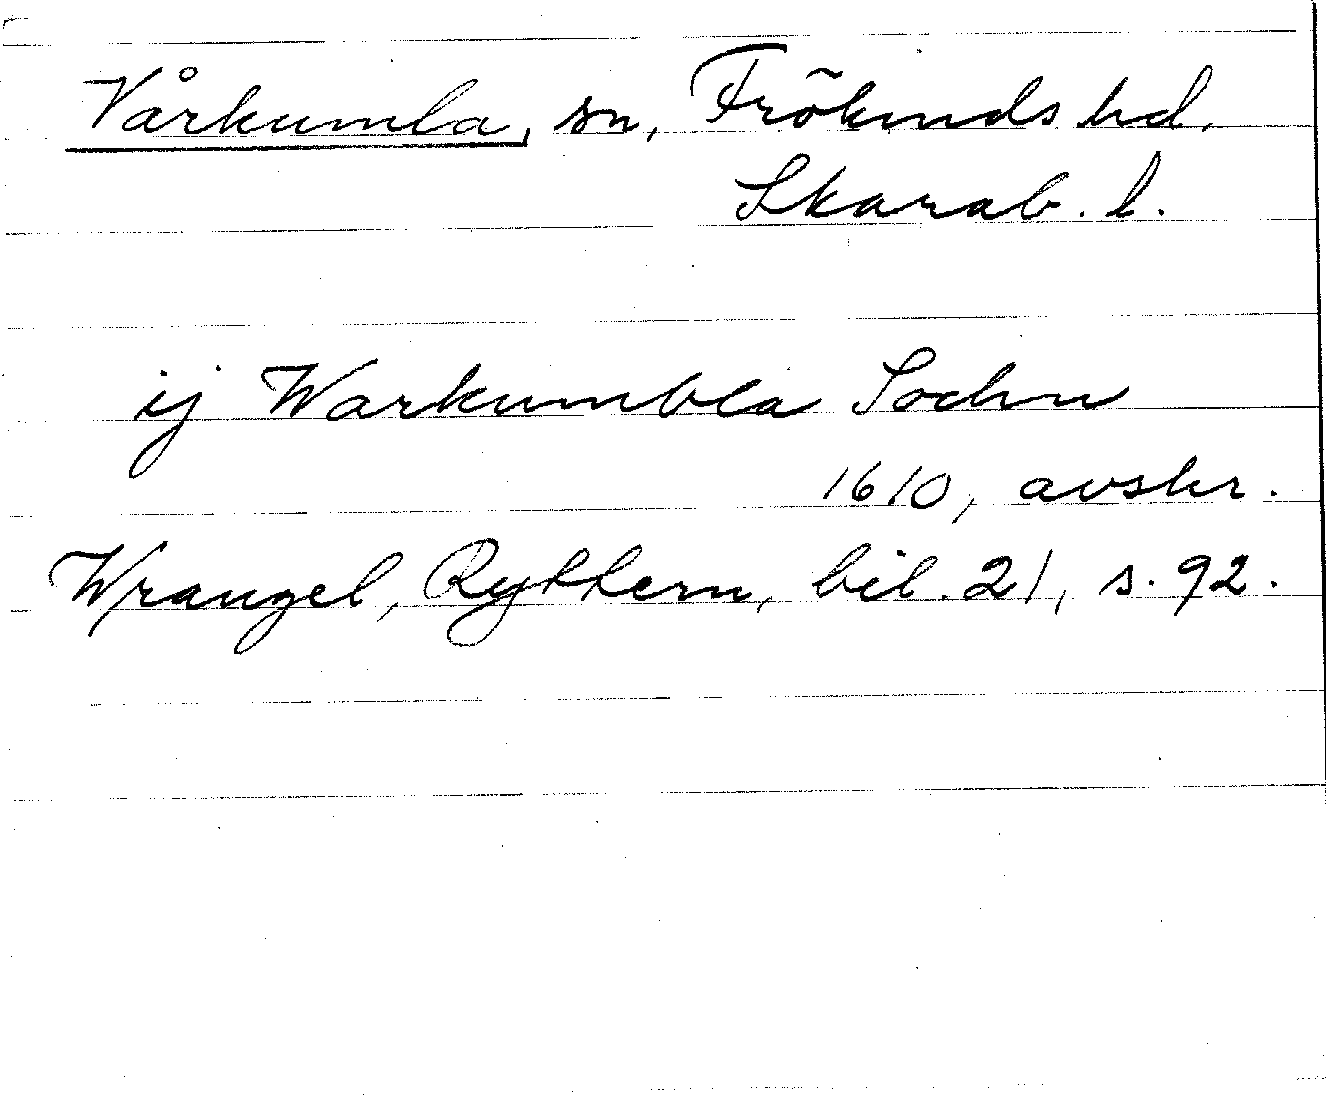 Vårkumla, sn, Frökinds hd.
Skarab. l.
ij Warkumbla Sochn
1610, avskr.
Wrangel, Ryttern, bil. 21, s. 92.